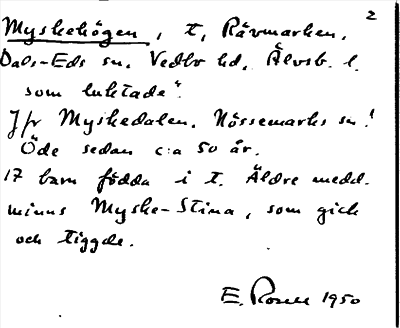 2
Myskehögen, t, Rävmarken,
Dals-Eds sn. Vedbo hd. Älvsb. l.
som luktade".
Jfr Myskedalen. Nössemarks sn!
Öde sedan c:a 50 år.
17 barn födda i t. Äldre medd.
minns Myske-Stina, som gick
och tiggde.
E. Rosen 1950